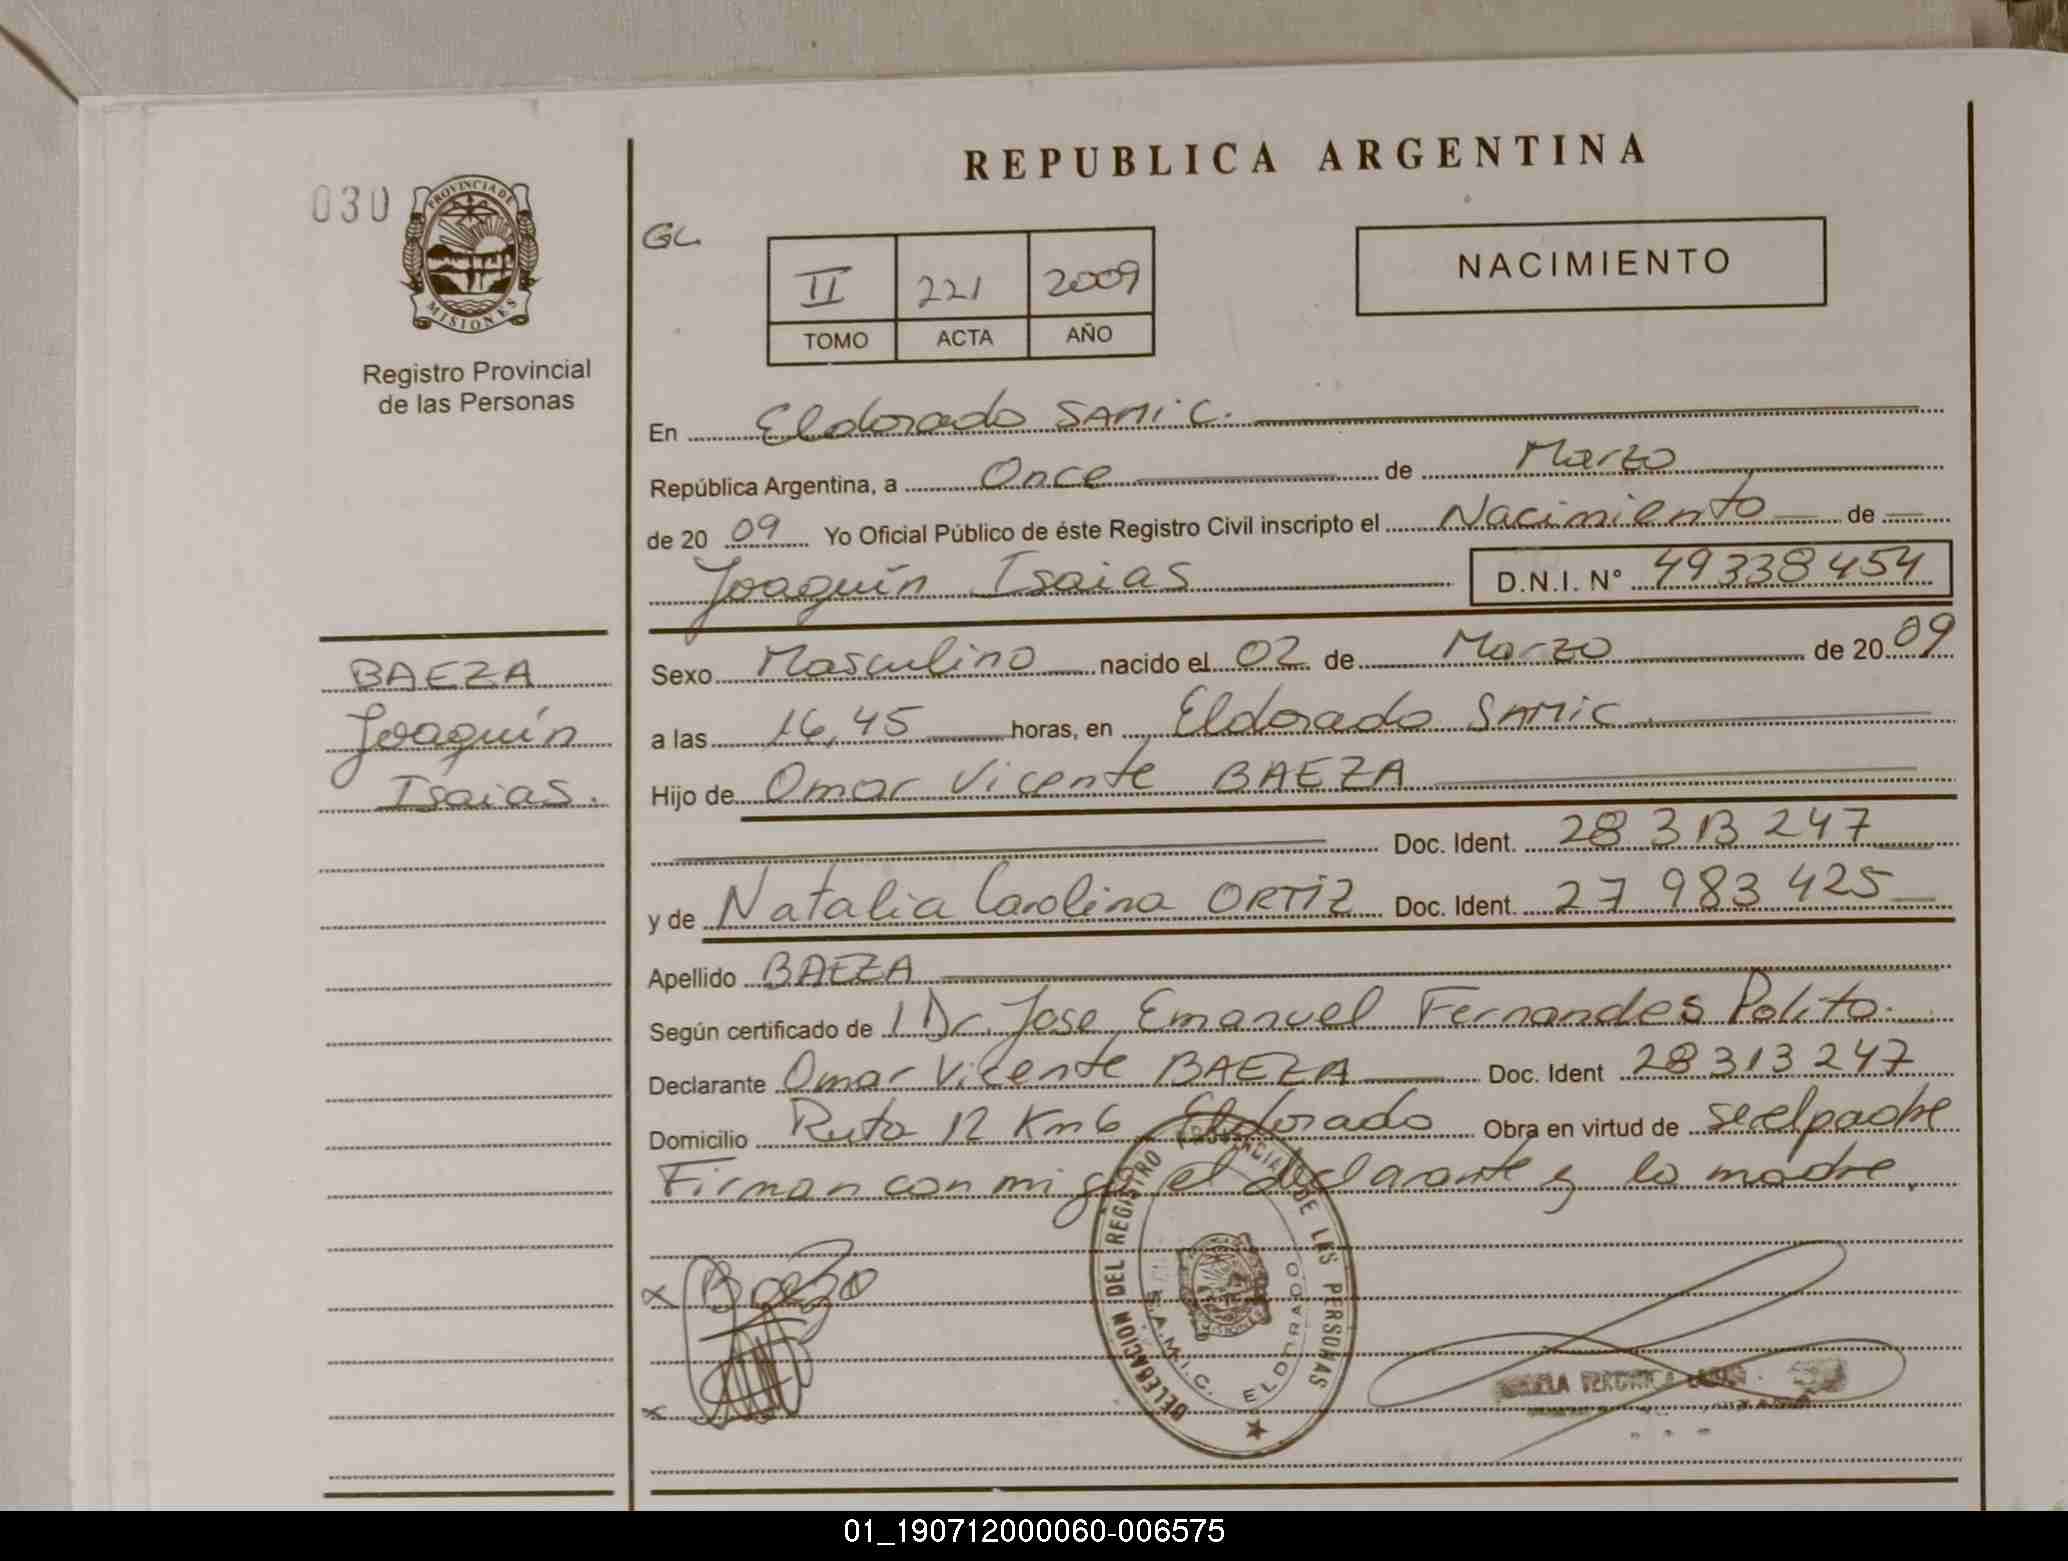 REPUBLICA ARGENTINA
030
PROVINCIA DE
MISIONES
Registro Provincial
de las Personas
GL
II 221 2009
TOMO ACTA AÑO
NACIMIENTO
En Eldorado SAMIC.
República Argentina, a Once de Marzo
de 20 09 Yo Oficial Público de éste Registro Civil inscripto el Nacimiento de
Joaquín Isaias D.N.I. N° 49338454
BAEZA
Joaquín
Isaias.
Sexo Masculino nacido el 02 de Marzo de 20 09
a las 16,45 horas, en Eldorado SAMIC.
Hijo de Omar Vicente BAEZA
Doc. Ident. 28 313 247
y de Natalia Carolina ORTIZ Doc. Ident. 27 983 425
Apellido BAEZA
Según certificado de Dr. Jose Emanuel Fernandes Polito.
Declarante Omar Vicente BAEZA Doc. Ident 28313247
Domicilio Ruta 12 Km 6 Eldorado Obra en virtud de se el padre
Firman con migo el declarante y la madre.
x Baeza
x
DELEGACION DEL REGISTRO PROVINCIAL DE LAS PERSONAS
S.A.M.I.C. ELDORADO
VERONICA
01_190712000060-006575